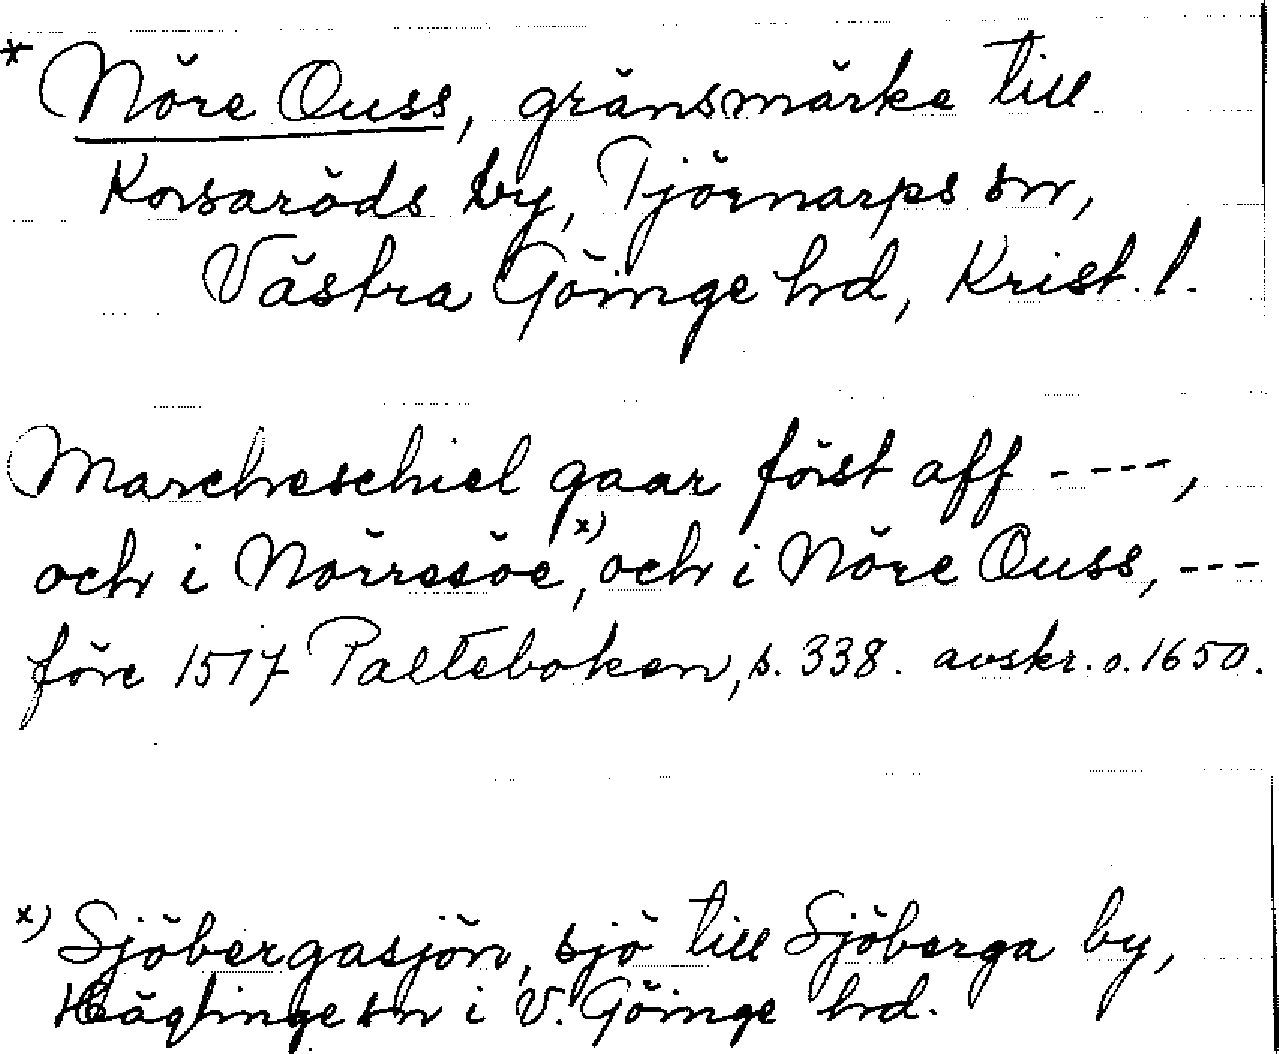 * Nöre Ouss, gränsmärke till
Korsaröds by, Tjörnarps sn,
Västra Göinge hd, Krist. l.
Marcheschiel gaar först aff ----,
och i Nörresöe,x) och i Nöre Ouss, ---
före 1517 Palteboken, s. 338. avskr. o. 1650.
x) Sjöbergasjön, sjö till Sjöberga by,
Häglinge sn i V. Göinge hd.